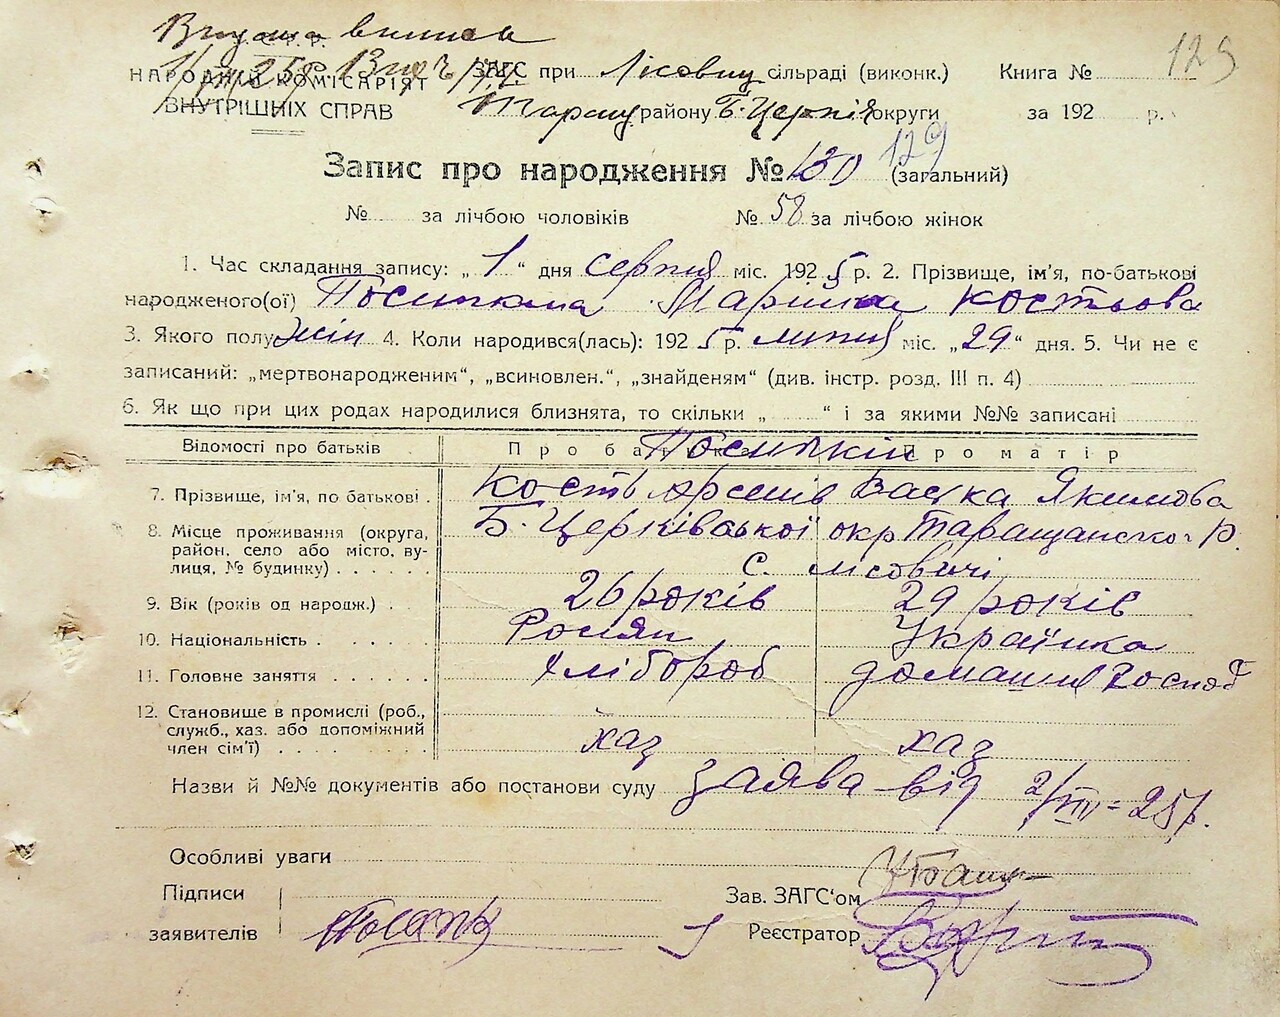 Видана виписка
У.С.Р.Р.
НАРОДНІЙ КОМІСАРІЯТ ЗАГС при Лісович сільраді (виконк.) Книга № 129
ВНУТРІШНІХ СПРАВ Таращ району Б-Церків округи за 192 р.
129
Запис про народження № 130 (загальний)
№ за лічбою чоловіків № 58 за лічбою жінок
1. Час складання запису: „ 1 “ дня серпня міс. 192 5 р. 2. Прізвище, ім'я, по-батькові
народженого(ої) Посипкина Марійка Костьова
3. Якого полу жін 4. Коли народився(лась): 192 5 р. липня міс. „ 29 “ дня. 5. Чи не є
записаний: „мертвонародженим“, „всиновлен.“, „знайденям“ (див. інстр. розд. III п. 4)
6. Як що при цих родах народилися близнята, то скільки „ “ і за якими №№ записані
Відомості про батьків Про батька Про матір
Посипкін
7. Прізвище, ім'я, по батькові . Кость Арсенів Васка Якимова
8. Місце проживання (округа, Б. Церківської окр Таращанско р.
район, село або місто, ву-
лиця, № будинку) . . . . . . с. Лісовичі
9. Вік (років од народж.) . . 26 років 29 років
10. Національність . . . . Росіян Українка
11. Головне заняття . . . . . . хлібороб домашня господ
12. Становище в промислі (роб.,
служб., хаз. або допоміжний
член сім'ї) . . . . . . . . хаз хаз
Назви й №№ документів або постанови суду заява від 2/VIII=25р.
Особливі уваги
Підписи
Зав. ЗАГС‘ом
заявителів Реєстратор